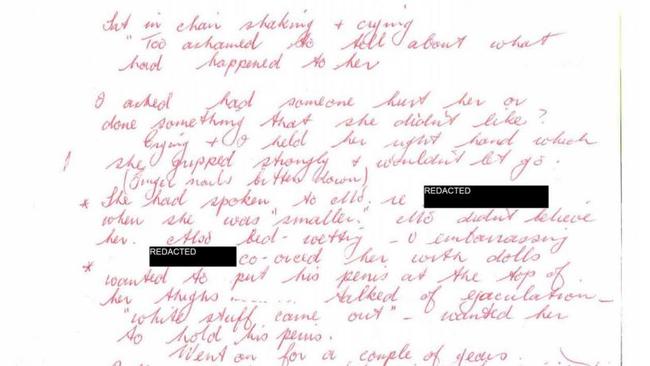 Sat in chair shaking + crying
"Too ashamed to tell about what
had happened to her
I asked had someone hurt her or
done something that she didn't like?
Crying + I held her right hand which
she gripped strongly + wouldn't let go.
(Finger nails bitten down)
* She had spoken to Mo. re REDACTED
when she was "smaller." Mo didn't believe
her. Also bed-wetting - v embarrassing
REDACTED co-orced her with dolls
* wanted to put his penis at the top of
her thighs ........ talked of ejaculation -
"white stuff came out" - wanted her
to hold his penis.
Went on for a couple of years.